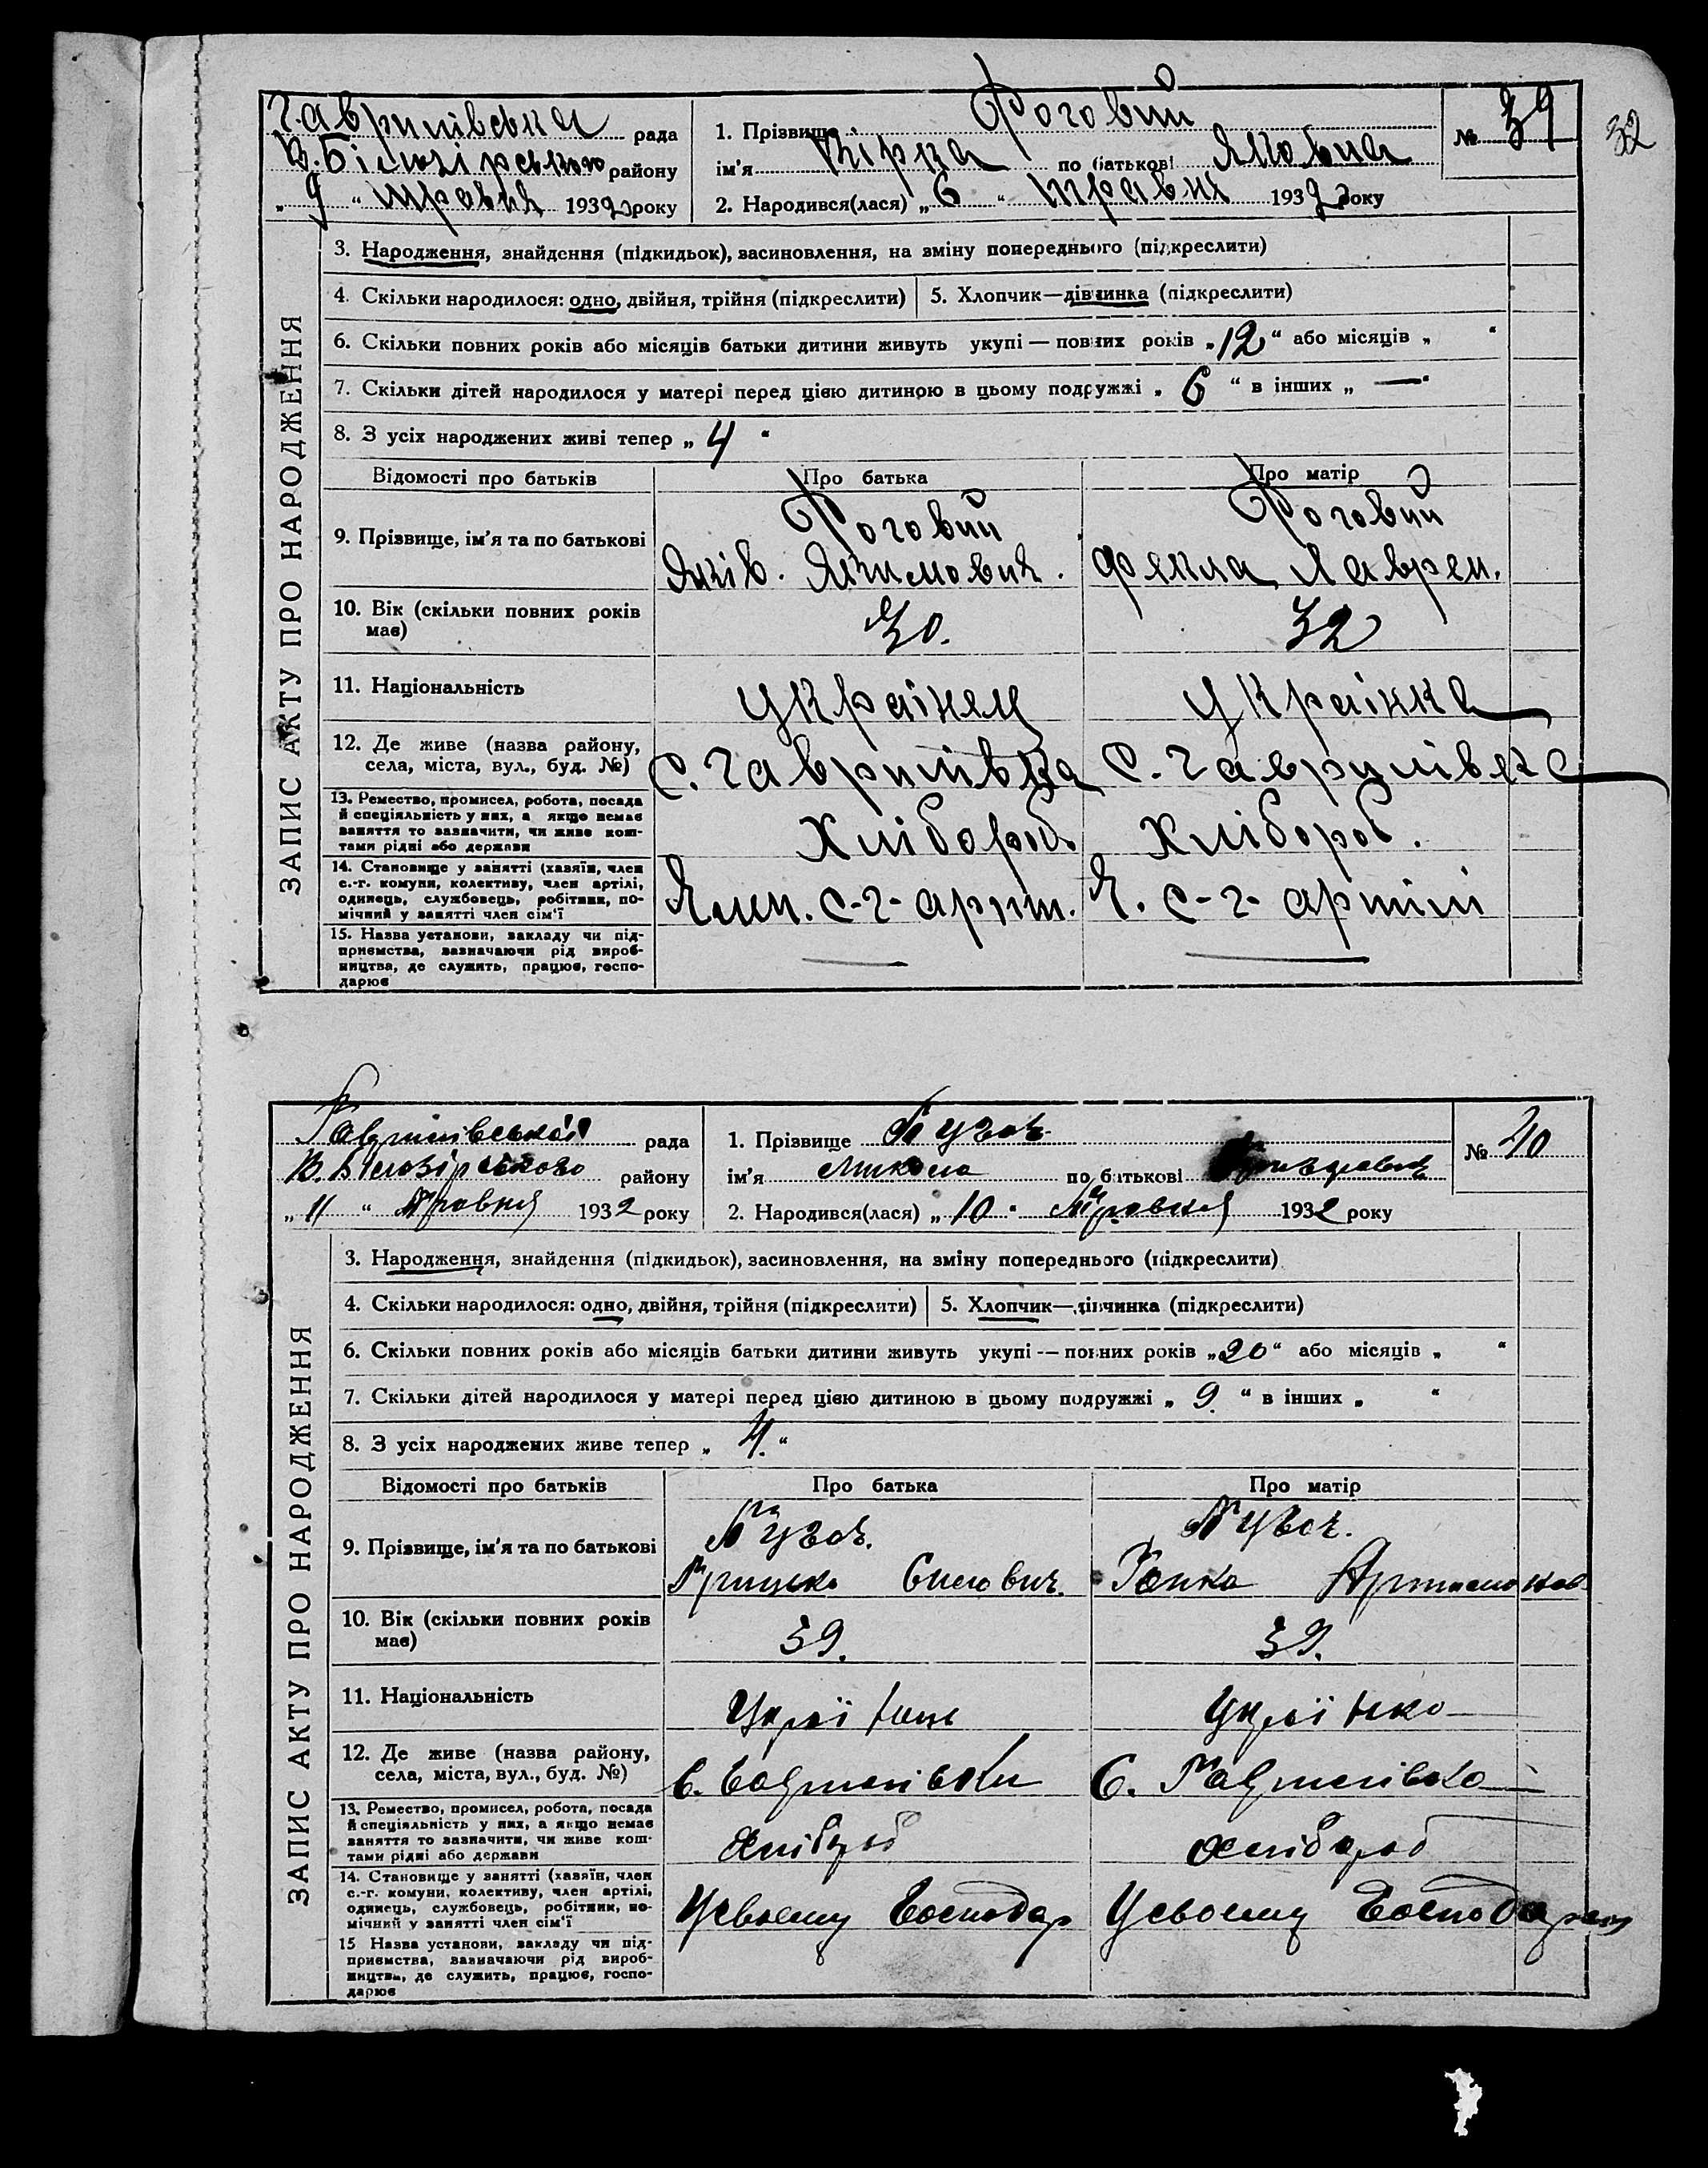 Гаврилівська рада
В. Білозірського району
„ 9 “ травня 1932 року
1. Прізвище Роговий
ім'я Вірка по батькові Яковна
2. Народився(лася) „ 6 “ травня 1932 року
№ 39
32
ЗАПИС АКТУ ПРО НАРОДЖЕННЯ
3. Народження, знайдення (підкидьок), засиновлення, на зміну попереднього (підкреслити)
4. Скільки народилося: одно, двійня, трійня (підкреслити) 5. Хлопчик—дівчинка (підкреслити)
6. Скільки повних років або місяців батьки дитини живуть укупі — повних років „ 12 “ або місяців „ “
7. Скільки дітей народилося у матері перед цією дитиною в цьому подружжі „ 6 “ в інших „ — “
8. З усіх народжених живі тепер „ 4 “
Відомості про батьків Про батька Про матір
9. Прізвище, ім'я та по батькові
Роговий Роговий
Яків. Якимович. Фекла Лаврен.
10. Вік (скільки повних років має)
30. 32
11. Національність українец українка
12. Де живе (назва району, села, міста, вул., буд. №)
С. Гаврилівка С. Гаврилівка
13. Ремество, промисел, робота, посада
й спеціяльність у них, а якщо немає
заняття то зазначити, чи живе кош-
тами рідні або держави
Хлібороб Хлібороб.
14. Становище у занятті (хазяїн, член
с.-г. комуни, колективу, член артілі,
одинець, службовець, робітник, по-
мічний у занятті член сім'ї
Член. с-г- арт. Ч. с-г- артілі
15. Назва установи, закладу чи під-
приємства, зазначаючи рід вироб-
ництва, де служить, працює, госпо-
дарює
— —
Гаврилівської рада
В. Білозірського району
„ 11 “ Травня 1932 року
1. Прізвище
ім'я Микола по батькові
2. Народився(лася) „ 10 “ Травня 1932 року
№ 40
ЗАПИС АКТУ ПРО НАРОДЖЕННЯ
3. Народження, знайдення (підкидьок), засиновлення, на зміну попереднього (підкреслити)
4. Скільки народилося: одно, двійня, трійня (підкреслити) 5. Хлопчик—дівчинка (підкреслити)
6. Скільки повних років або місяців батьки дитини живуть укупі — повних років „ 20 “ або місяців „ “
7. Скільки дітей народилося у матері перед цією дитиною в цьому подружжі „ 9. “ в інших „ “
8. З усіх народжених живе тепер „ 4. “
Відомості про батьків Про батька Про матір
9. Прізвище, ім'я та по батькові
Грицько
10. Вік (скільки повних років має)
39. 39.
11. Національність Українець Українка
12. Де живе (назва району, села, міста, вул., буд. №)
С. Гаврилівки С. Гаврилівка
13. Ремество, промисел, робота, посада
й спеціяльність у них, а якщо немає
заняття то зазначити, чи живе кош-
тами рідні або держави
Хлібороб Хлібороб
14. Становище у занятті (хазяїн, член
с.-г. комуни, колективу, член артілі,
одинець, службовець, робітник, по-
мічний у занятті член сім'ї
Усвоєму Господар Усвоєму
15 Назва установи, закладу чи під-
приємства, зазначаючи рід вироб-
ництва, де служить, працює, госпо-
дарює